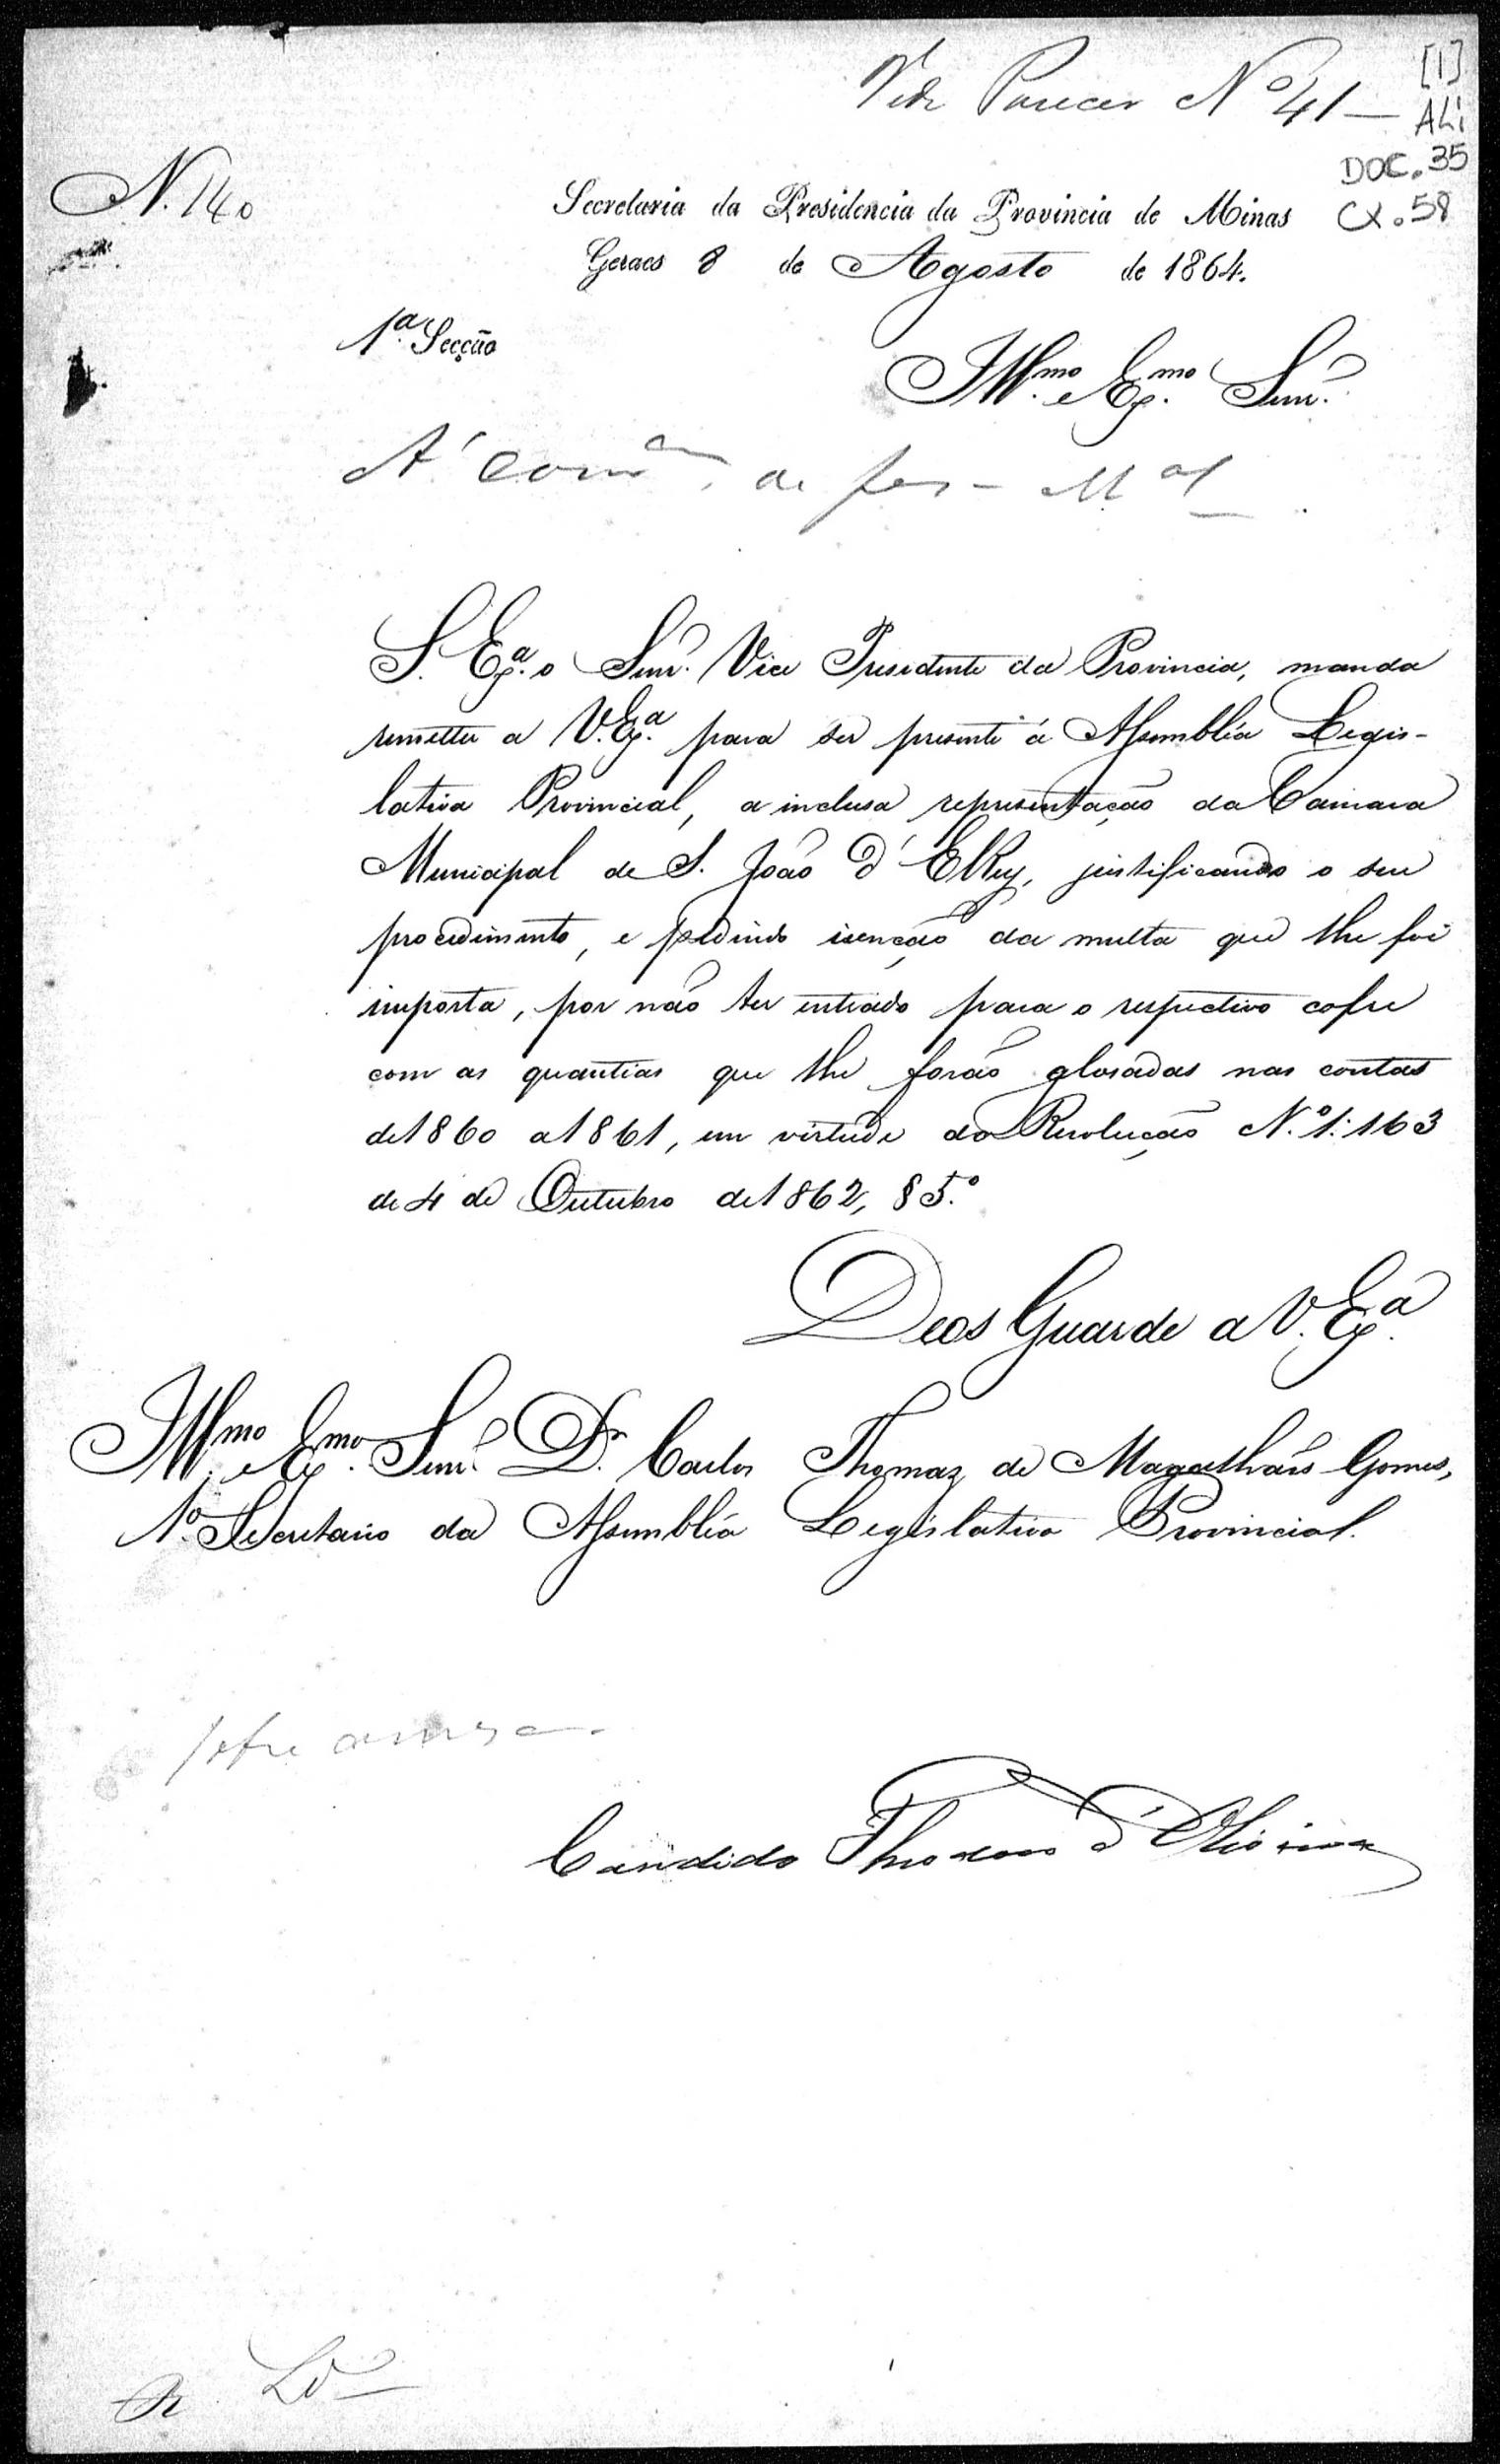 Vide Parecer Nº 41 —
[1]
ALi
DOC. 35
CX. 58
N. 140
Secretaria da Presidencia da Provincia de Minas
Geraes 8 de Agosto de 1864.
1ª Secção
Illmo. e Exmo. Snr.
A' Comam. de
S. Exª. o Snr. Vice Presidente da Provincia, manda
remetter a V. Exª. para ser presente á Assembléa Legis-
lativa Provincial, a inclusa representação da Camara
Municipal de S. João d'ElRey, justificando o seu
procedimento, e pedindo isenção da multa que lhe foi
imposta, por não ter entrado para o respectivo cofre
com as quantias que lhe forão glosadas nas contas
de 1860 a 1861, em virtude da Resolução N.º 1:163
de 4 de Outubro de 1862, § 5.º
Deos Guarde a V. Exª.
Illmo. e Exmo. Snr. Dr. Carlos Thomaz de Magalhães Gomes,
1º Secretario da Assembléa Legislativa Provincial.
Candido Theodoro d'Oliveira